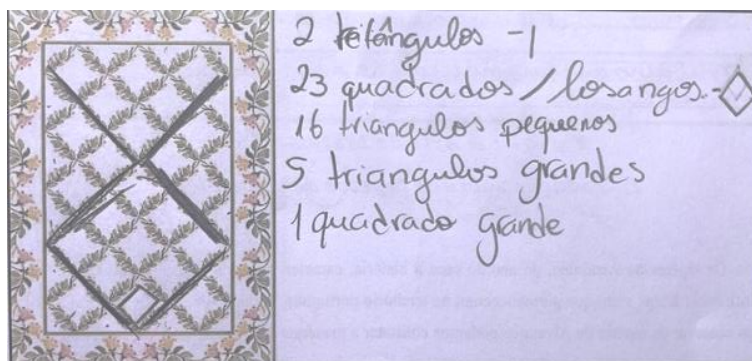 2 retângulos - 1
23 quadrados / losangos -
16 triangulos pequenos
5 triangulos grandes
1 quadrado grande